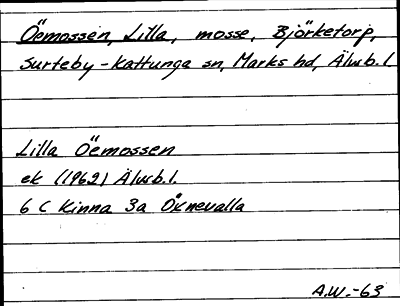 Öemossen, Lilla, mosse, Björketorp,
Surteby-Kattunga sn, Marks hd, Älvsb. l
Lilla Öemossen
ek (1962) Älvsb. l.
6 C Kinna 3a Öxnevalla
A.W.-63